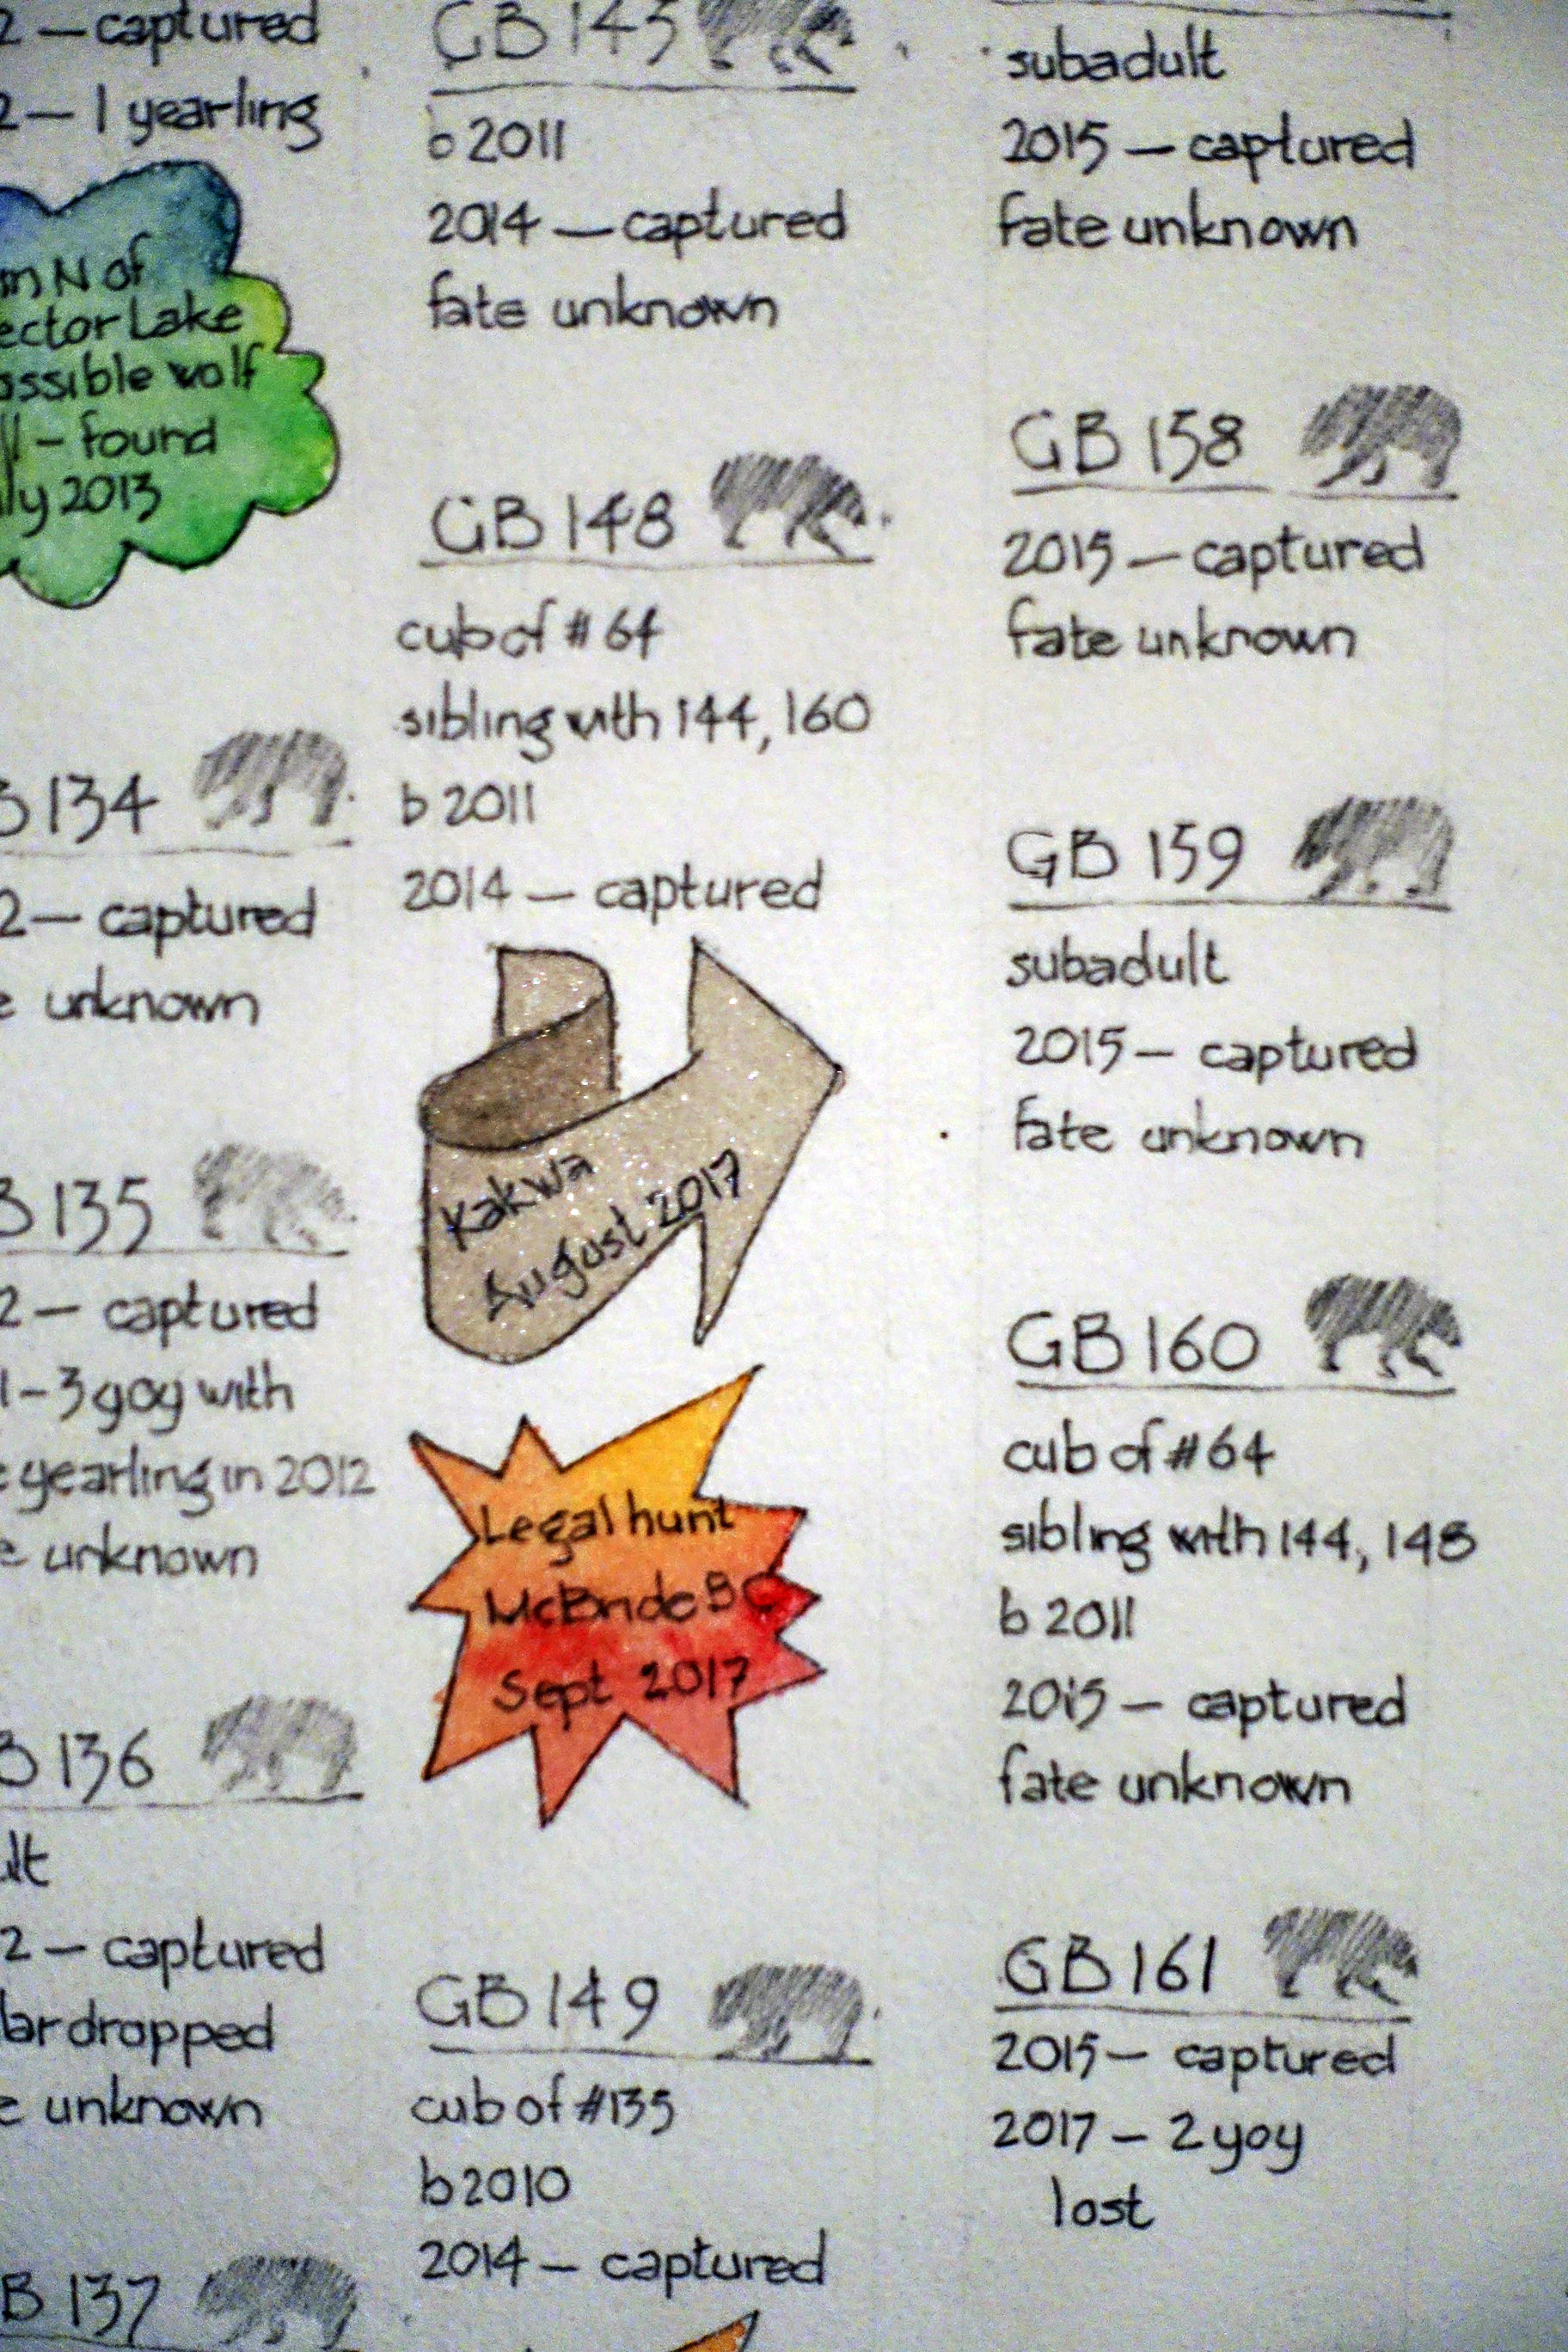 2 — captured
2 — 1 yearling
N of
ector Lake
ossible wolf
- found
ly 2013
B 134
2 — captured
e unknown
B 135
2 — captured
1 - 3 yoy with
e yearling in 2012
e unknown
B 136
ult
2 — captured
lar dropped
e unknown
B 137
GB 145
b 2011
2014 — captured
fate unknown
GB 148
cub of # 64
sibling with 144, 160
b 2011
2014 — captured
Kakwa
August 2017
Legal hunt
McBride BC
Sept 2017
GB 149
cub of #135
b 2010
2014 — captured
subadult
2015 — captured
fate unknown
GB 158
2015 — captured
fate unknown
GB 159
subadult
2015 — captured
fate unknown
GB 160
cub of #64
sibling with 144, 148
b 2011
2015 — captured
fate unknown
GB 161
2015 — captured
2017 — 2 yoy
lost